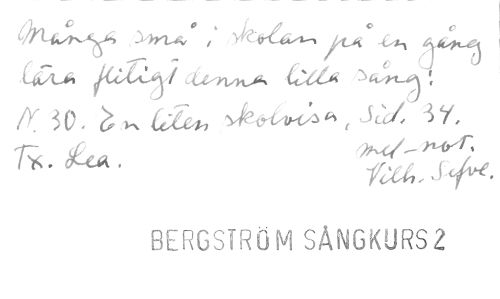 Många små i skolan på en gång
lära flitigt denna lilla sång!
N. 30. En liten skolvisa, Sid. 34.
Tx. Lea.
mel-not.
Vilh. Sefve.
BERGSTRÖM SÅNGKURS 2